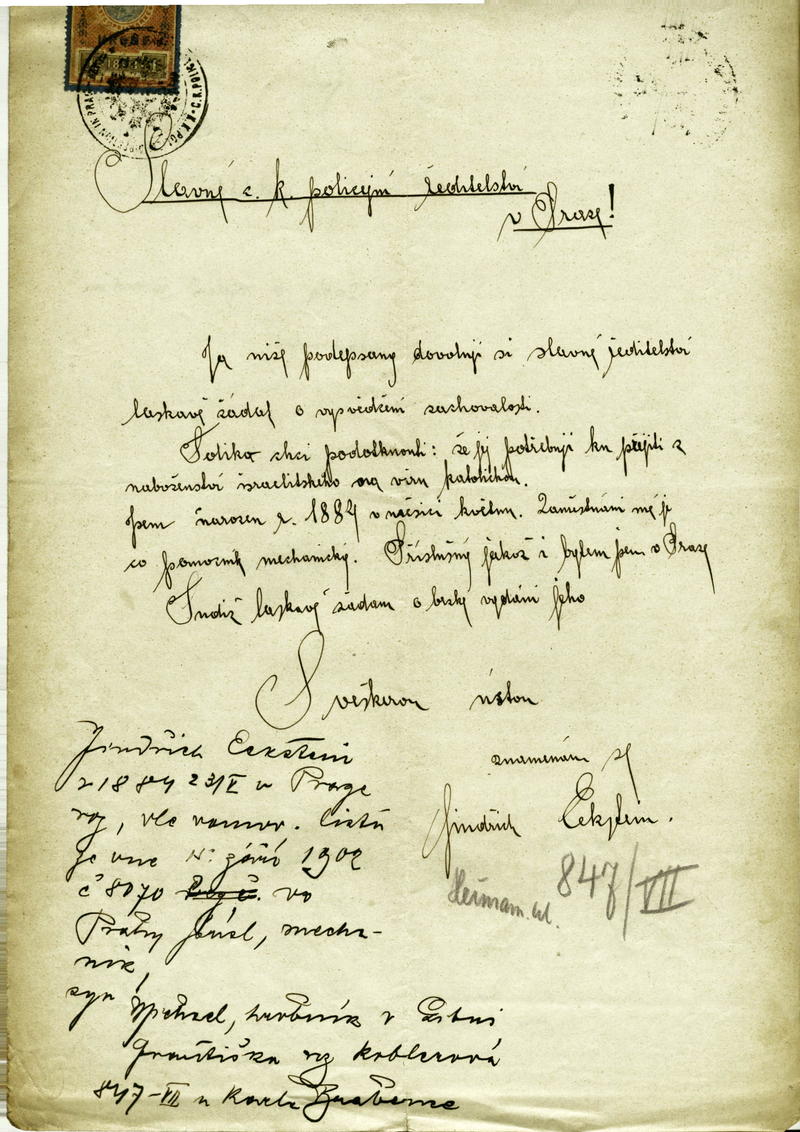 Slavné c. k. policejní ředitelství
v Praze!
Já níže podepsaný dovoluji si slavné ředitelství
laskavě žádat o vysvědčení zachovalosti.
Tolika chci podotknouti: že jej potřebuji ku přejití z
naboženství israelitského na viru katolickou.
Jsem narozen r. 1884 v měsíci květnu. Zaměstnání mé je
co pomocník mechanický. Příslušný jakož i bytem jsem v Praze
Tudiž laskavě žádám o brzké vydání jeho
S veškerou úctou
znamenám se
Jindřich Eckstein.
Jindřich Eckstein
1884 23/V v Praze
dle domov. listu
ze dne září 1902
č 8070 do
Prahy přísl, mecha-
nik,
syn Michael,
Františka Koblerová
847-VII u Karla
Heřmam. ul. 847/VII